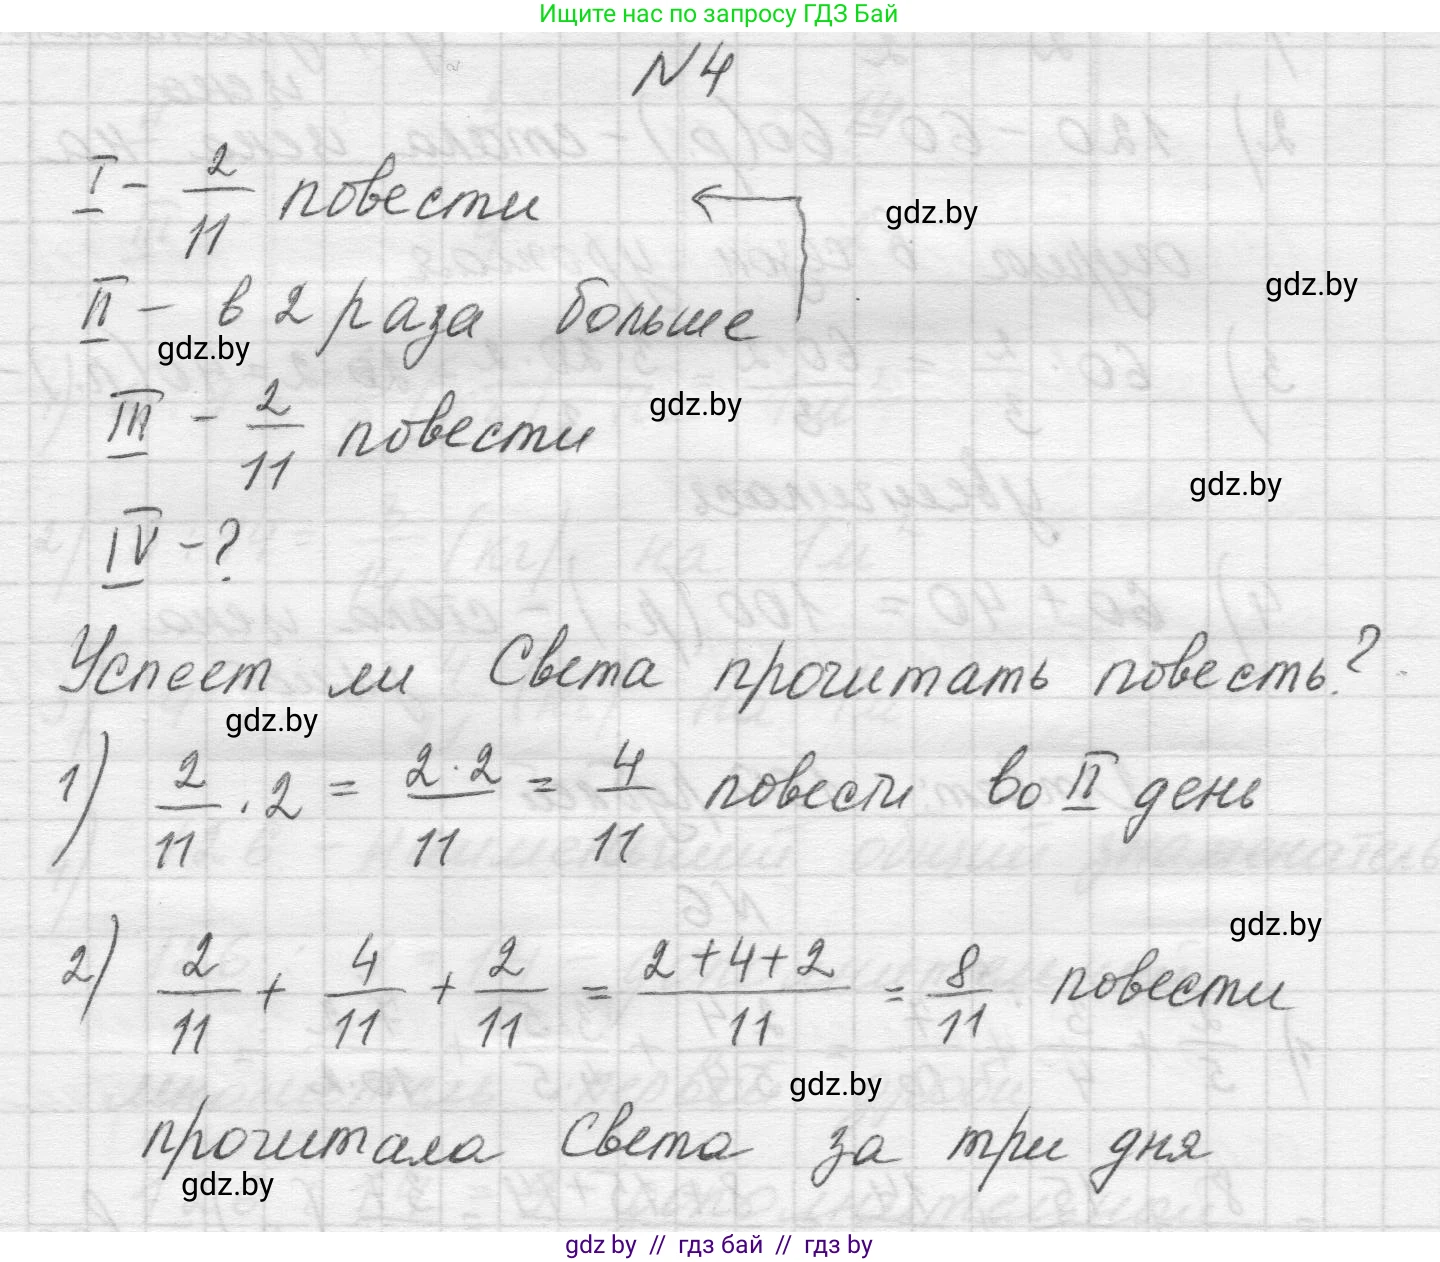 Ищите нас по запросу ГДЗ Бай
N4
I - 2/11 повести
gdz.by
gdz.by
II - в 2 раза больше
gdz.by
gdz.by
III - 2/11 повести
gdz.by
IV - ?
Успеет ли Света прочитать повесть?
gdz.by
1) 2/11 · 2 = 2·2/11 = 4/11 повести во II день
gdz.by
2) 2/11 + 4/11 + 2/11 = 2+4+2/11 = 8/11 повести
gdz.by
прочитала Света за три дня
gdz.by
gdz by // гдз бай // гдз by